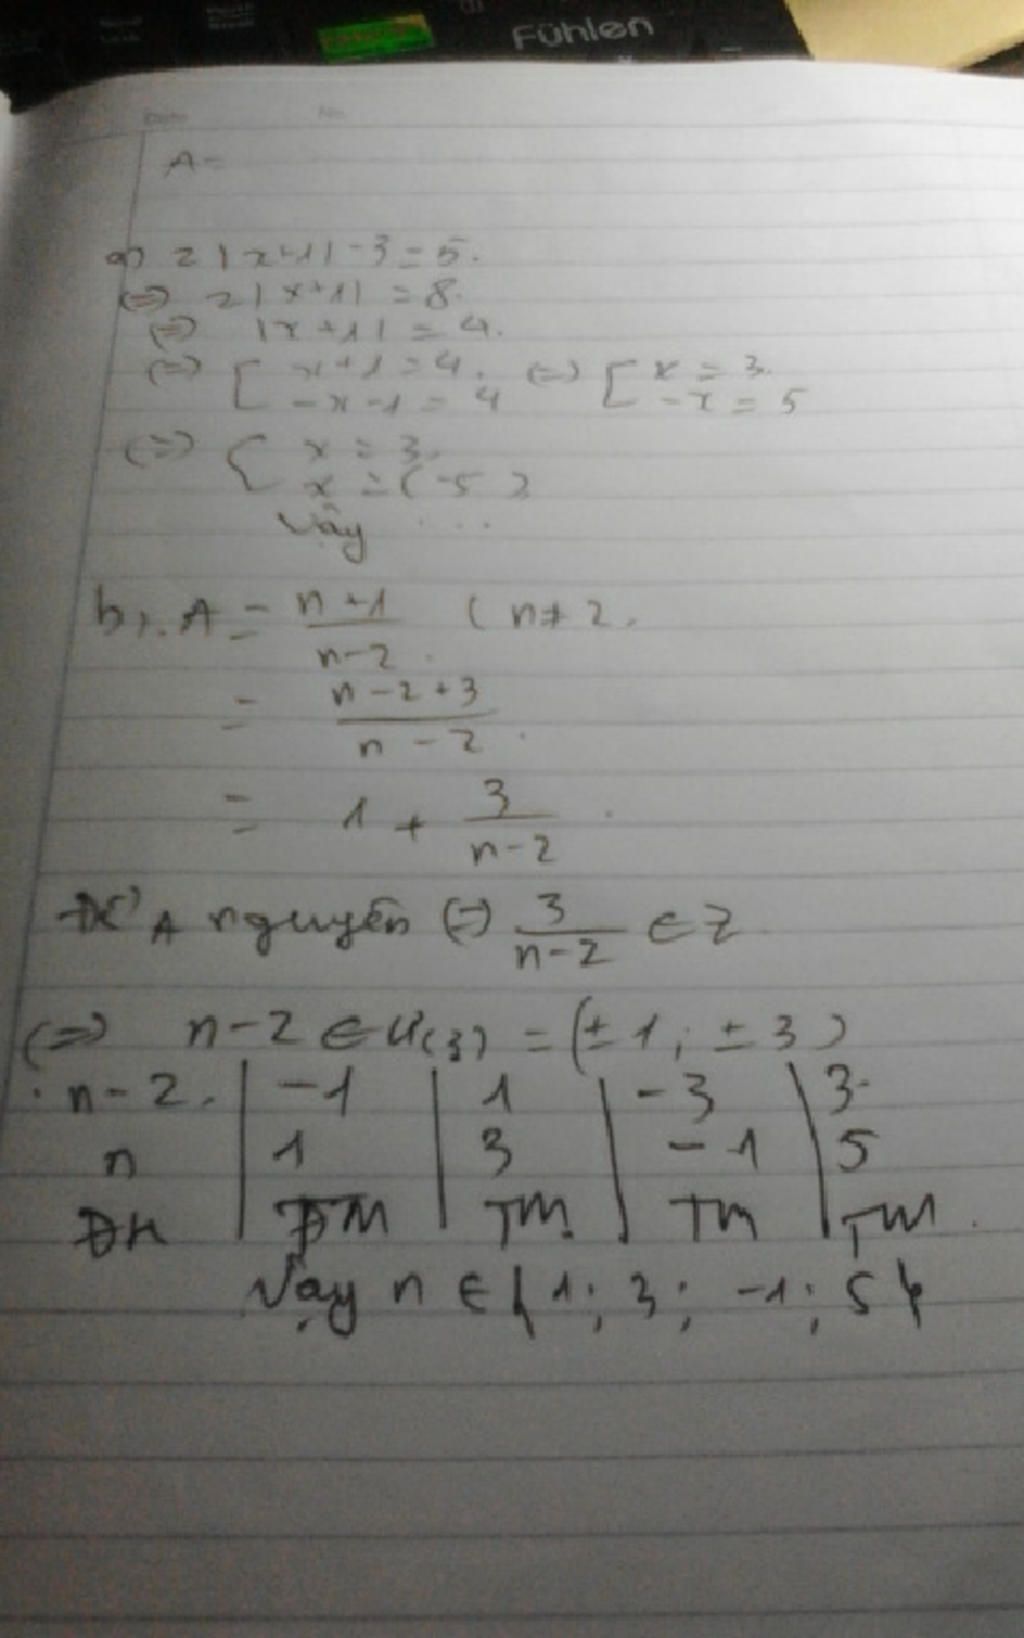 Fühlen
Date No.
A =
a) 2|x+1| - 3 = 5.
(=) 2|x+1| = 8.
(=) |x+1| = 4.
(=) [ x+1 = 4. (=) [ x = 3.
-x-1 = 4 -x = 5
(=) { x = 3.
x = (-5)
Vậy ...
b). A = n+1 / n-2 ( n ≠ 2.
= n-2+3 / n-2.
= 1 + 3 / n-2.
Để A nguyên (=) 3 / n-2 ∈ Z
(=) n-2 ∈ Ư(3) = (±1; ±3)
n-2. | -1 | 1 | -3 | 3.
n | 1 | 3 | -1 | 5
ĐK | TM | TM. | TM | TM.
Vậy n ∈ { 1; 3; -1; 5 }